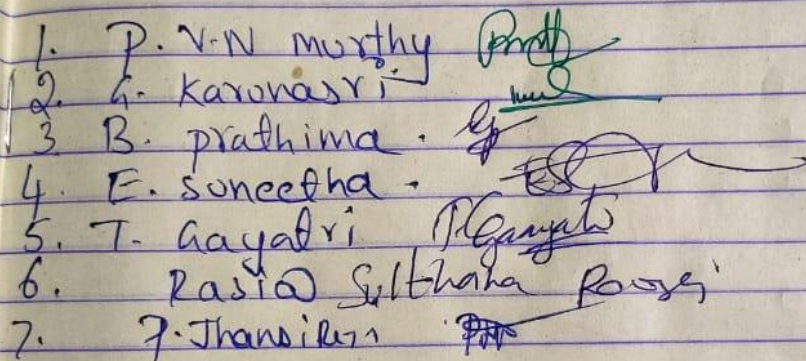 1. P. V.N murthy
2. G. Karunasri
3 B. prathima.
4. E. suneetha.
5. T. Gayatri T. Gayatri
6. Rasia Sulthana
7. P. Jhansi